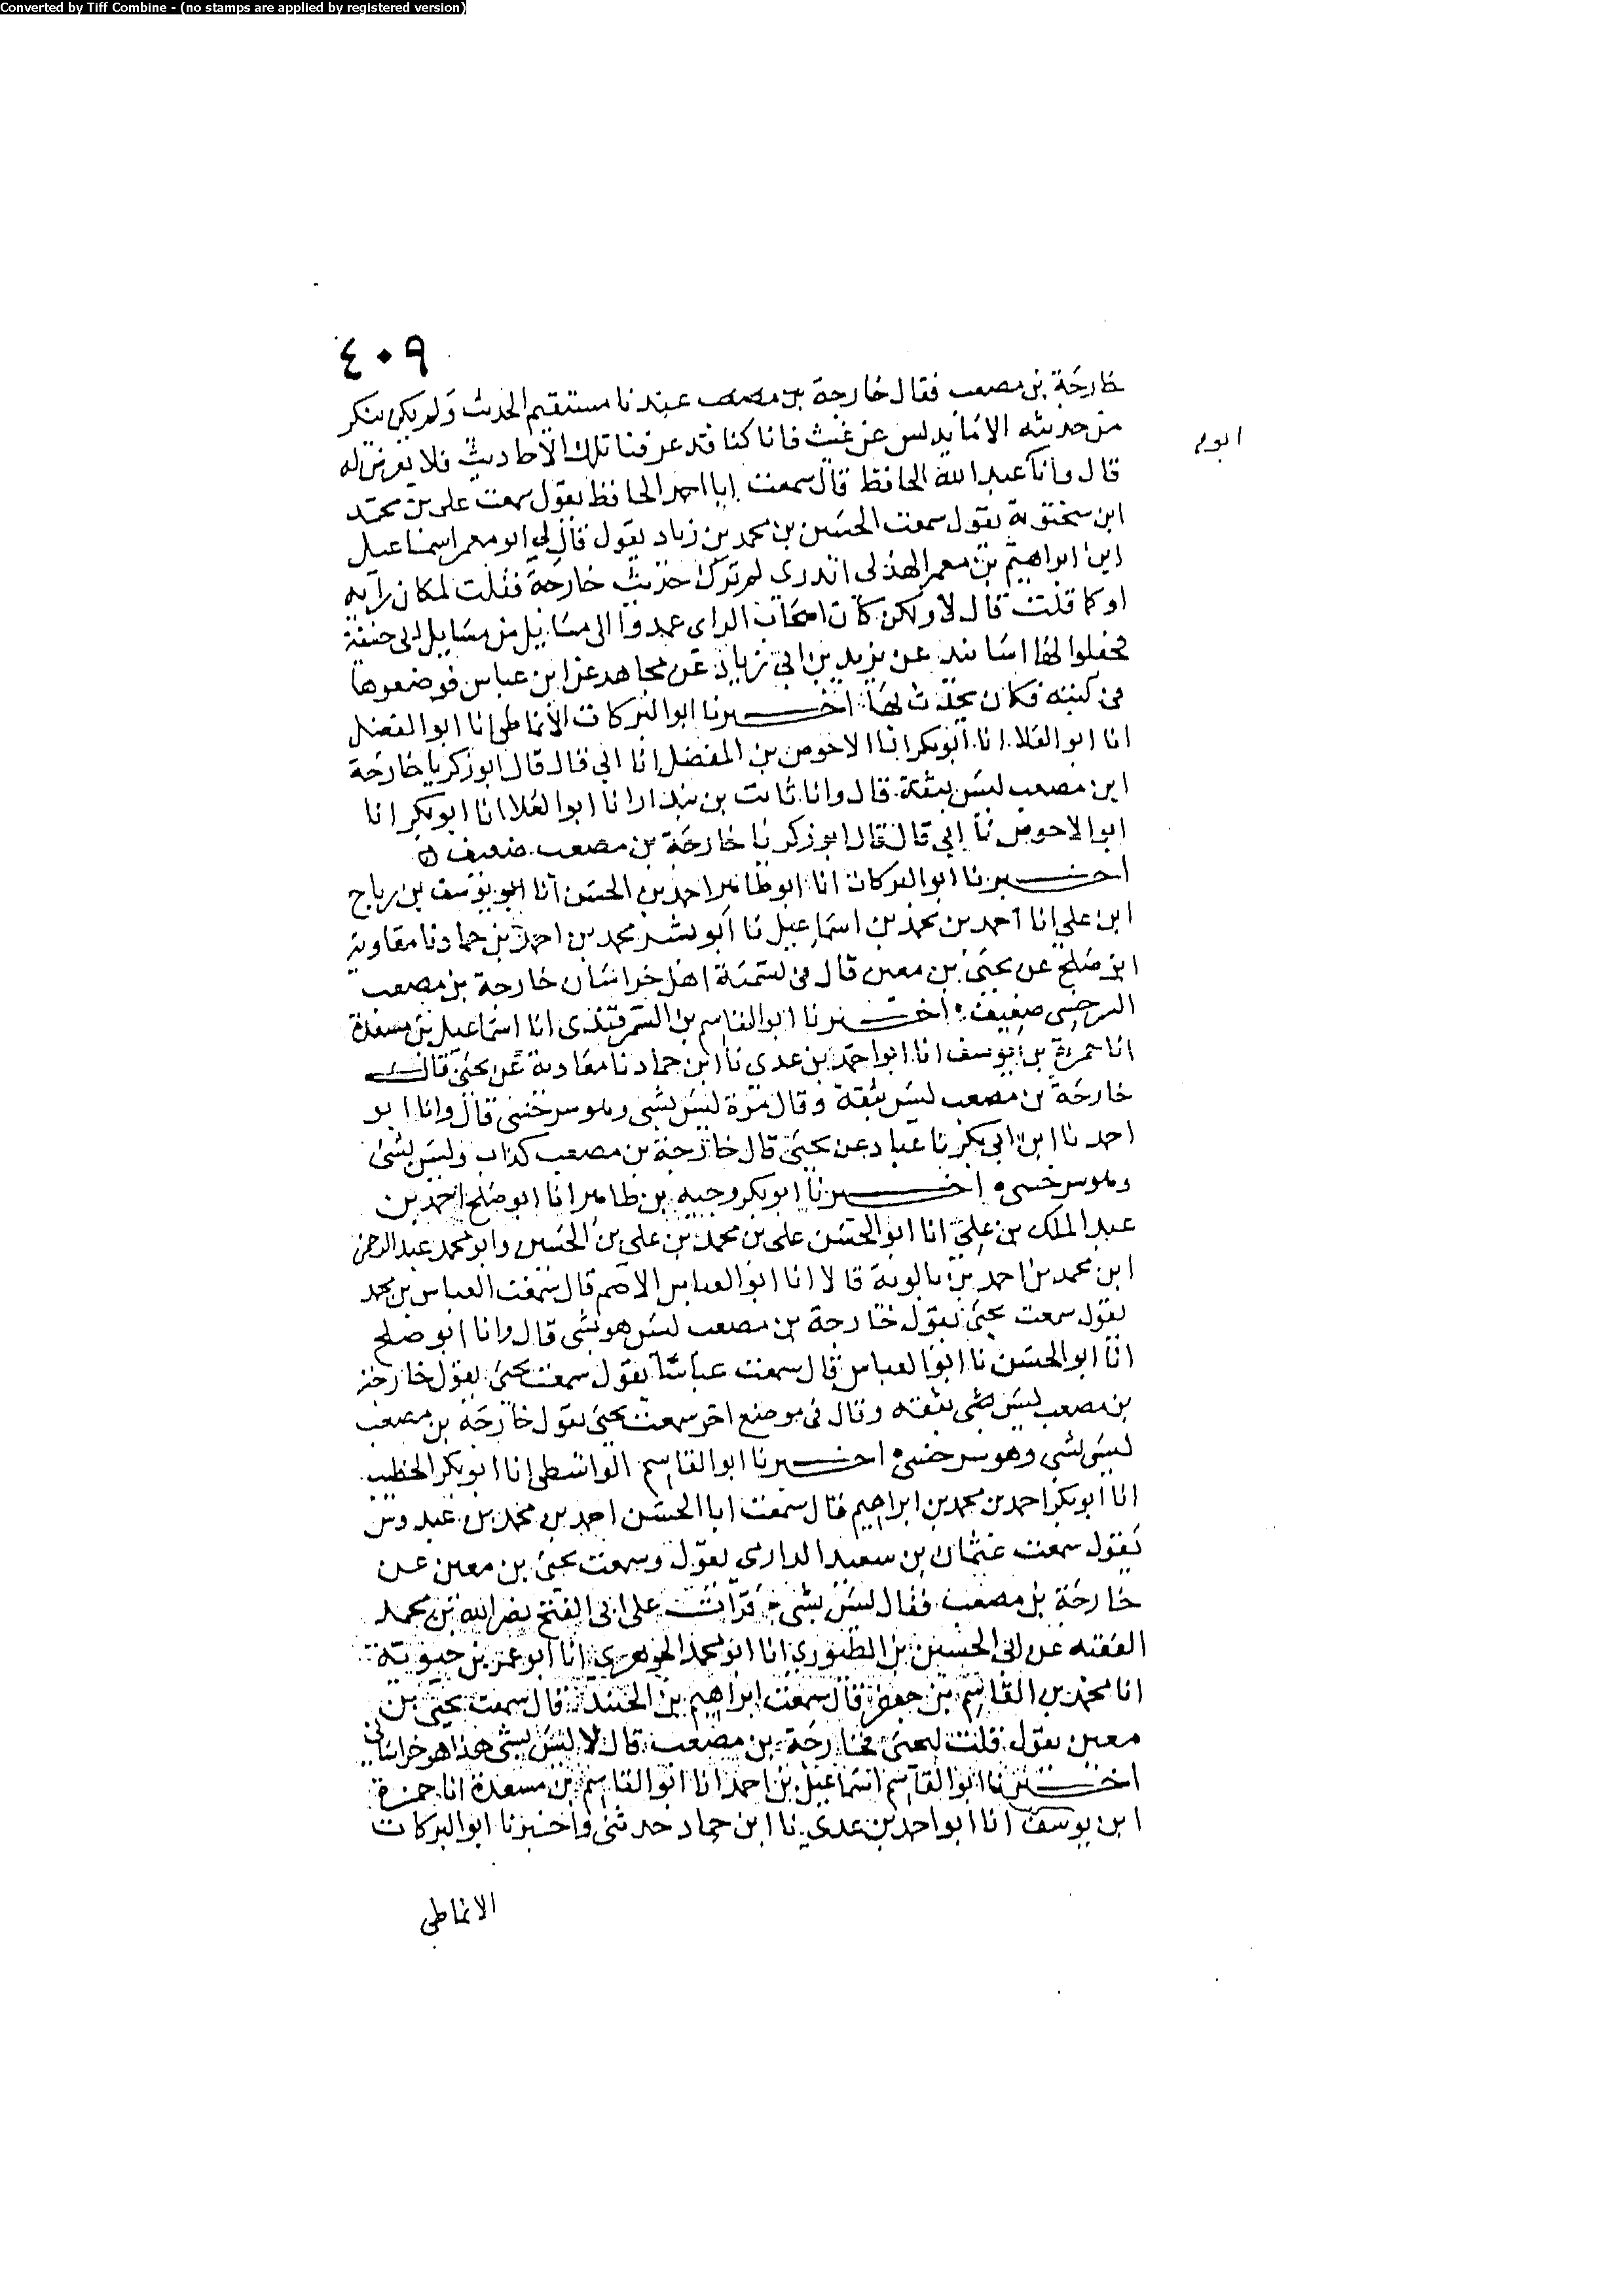 Converted by Tiff Combine - (no stamps are applied by registered version)
٤٠٩
خارجة بن مصعب فقال خارجة بن مصعب عندنا مستقيم الحديث ولم يكن ينكر
من حديثه الا ما يدلس عن غياث فانا كنا قد عرفنا تلك الاحاديث فلا يعرض له
قال وانا عبد الله الحافظ قال سمعت ابا احمد الحافظ يقول سمعت علي بن محمد
ابن سختويه يقول سمعت الحسين بن محمد بن زياد يقول قال لي ابو معمر اسماعيل
ابن ابراهيم بن معمر الهذلي اتدري لم ترك حديث خارجة فقلت لمكان رايه
او كما قلت قال لا ولكن كان اصحاب الراي عمدوا الى مسايل من مسايل ابي حنيفة
فجعلوا لها اسانيد عن يزيد بن ابي زياد عن مجاهد عن ابن عباس فوضعوها
في كتبه فكان يحدث بها اخبرنا ابو البركات الانماطي انا ابو الفضل
انا ابو العلا انا ابو بكر انا الاحوص بن المفضل انا ابي قال قال ابو زكريا خارجة
ابن مصعب ليس بثقة قال وانا ثابت بن بندار انا ابو العلا انا ابو بكر انا
ابو الاحوص نا ابي قال قال ابو زكريا خارجة بن مصعب ضعيف ه
اخبرنا ابو البركات انا ابو طاهر احمد بن الحسن انا ابو يوسف بن رباح
ابن علي انا احمد بن محمد بن اسماعيل نا ابو بشر محمد بن احمد بن حماد نا معاوية
ابن صلح عن يحيى بن معين قال في تسمية اهل خراسان خارجة بن مصعب
السرخسي ضعيف اخبرنا ابو القاسم بن السمرقندي انا اسماعيل بن مسعدة
انا حمزة بن يوسف انا ابو احمد بن عدي نا ابن حماد نا معاوية عن يحيى قال
خارجة بن مصعب ليس بثقة وقال مرة ليس بشي وهو سرخسي قال وانا ابو
احمد نا ابن ابي بكر نا عباد عن يحيى قال خارجة بن مصعب كذاب وليس بشي
وهو سرخسي اخبرنا ابو بكر وجيه بن طاهر انا ابو صلح احمد بن
عبد الملك بن علي انا ابو الحسن علي بن محمد بن علي بن الحسين وابو محمد عبد الرحمن
ابن محمد بن احمد بن بالويه قالا انا ابو العباس الاصم قال سمعت العباس بن محمد
يقول سمعت يحيى يقول خارجة بن مصعب ليس هو بشي قال وانا ابو صلح
انا ابو الحسن نا ابو العباس قال سمعت عباسا يقول سمعت يحيى يقول خارجة
بن مصعب ليس بثقة وقال في موضع اخر سمعت يحيى يقول خارجة بن مصعب
ليس بشي وهو سرخسي اخبرنا ابو القاسم الواسطي انا ابو بكر الخطيب
انا ابو بكر احمد بن محمد بن ابراهيم قال سمعت ابا الحسن احمد بن محمد بن عبدوس
يقول سمعت عثمان بن سعيد الدارمي يقول وسمعت يحيى بن معين عن
خارجة بن مصعب فقال ليس بشي قرات على ابي الفتح نصر الله بن محمد
الفقيه عن ابي الحسين بن الطيوري انا ابو محمد الجوهري انا ابو عمر بن حيويه
انا محمد بن القاسم بن جعفر قال سمعت ابراهيم بن الجنيد قال سمعت يحيى بن
معين يقول قلت ليحيى فخارجة بن مصعب قال لا ليس بشي هذا هو خراساني
اخبرنا ابو القاسم اسماعيل بن احمد انا ابو القاسم بن مسعدة انا حمزة
ابن يوسف انا ابو احمد بن عدي نا ابن حماد حدثني واخبرنا ابو البركات
الانماطي